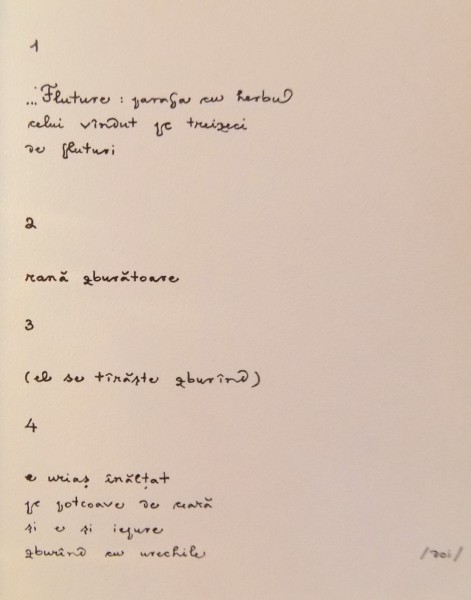 1
...Fluture : parafa cu herbul
celui vîndut pe treizeci
de fluturi
2
rană zburătoare
3
(el se tîrăște zburînd)
4
e uriaș înălțat
pe potcoave de ceară
și e și iepure
zburînd cu urechile